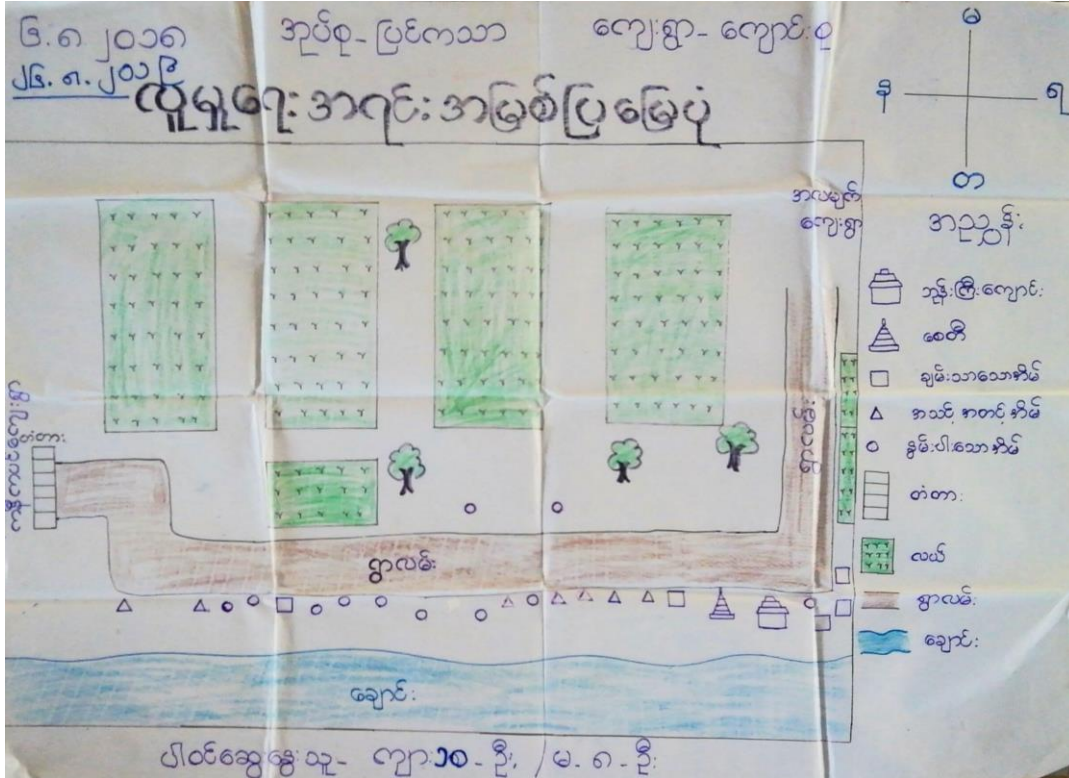 ၆.၈ ၂၀၁၈ အုပ်စု - ပြင်ကသာ ကျေးရွာ - ကျောင်းစု
၂၆.၈.၂၀၁၆
လူမှုရေးအရင်းအမြစ်ပြမြေပုံ
မ
န
ရ
တ
အလမျက်
ကျေးရွာ
အညွှန်း
ဘုန်းကြီးကျောင်း
စေတီ
ချမ်းသာသောအိမ်
အသင့်အတင့်အိမ်
နွမ်းပါးသောအိမ်
တံတား
လယ်
ရွာလမ်း
ချောင်း
တံတား
ရွာလမ်း
ရွာလမ်း
ချောင်း
ပါဝင်ဆွေးနွေးသူ - ကျား ၁၀ - ဦး, / မ - ၈ - ဦး